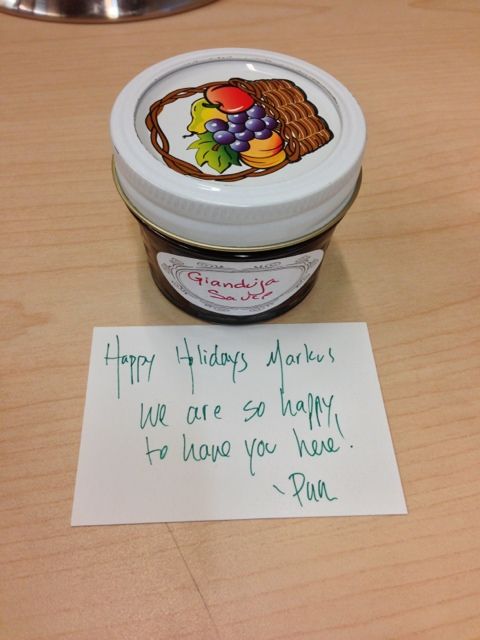 Gianduja
Sauce
Happy Holidays Markus
we are so happy
to have you here!